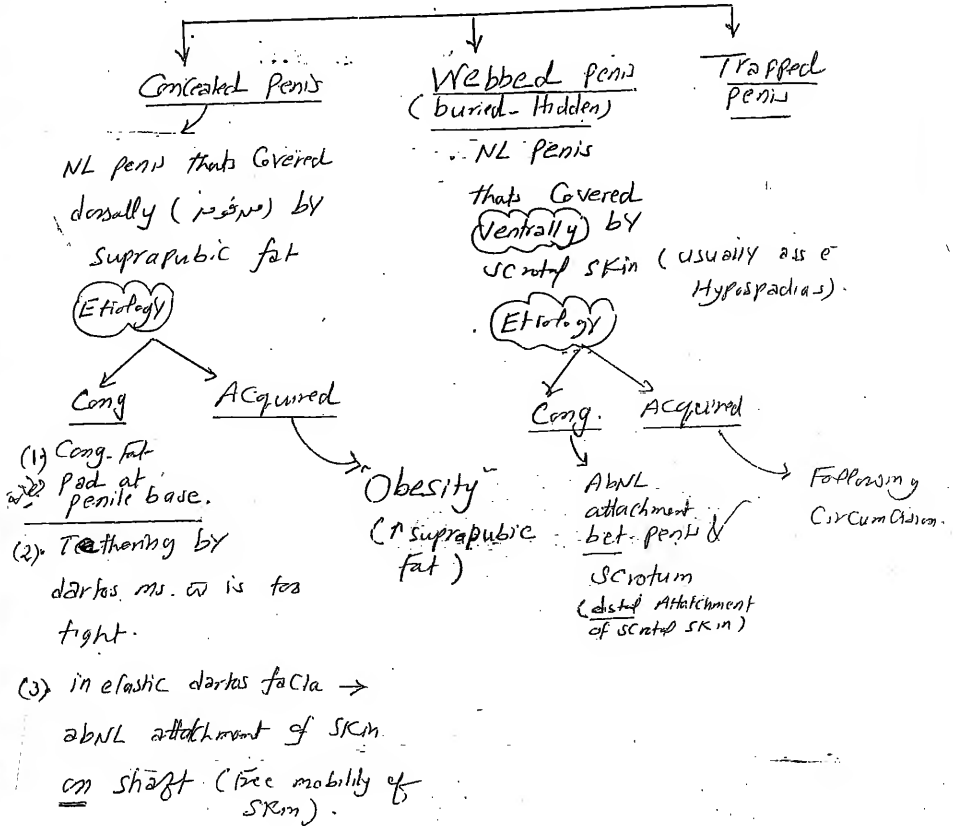 Concealed Penis
NL penis thats Covered
dorsally ( ) by
suprapubic fat
Etiology
Cong
Acquired
(1) Cong. Fat
Pad at
penile base.
(2). Tethering by
dartos ms. w̅ is too
tight.
(3) inelastic dartos facia →
abNL attatchment of skin
on shaft (Free mobility of
skin).
"Obesity"
(↑ suprapubic
fat)
Webbed penis
(buried - Hidden)
NL penis
thats Covered
Ventrally by
scrotal skin (usually ass e̅
Hypospadias).
Etiology
Cong.
Acquired
AbNL
attachment
bet. penis &
scrotum
(distal Attatchment
of scrotal skin)
Following
Circumcision.
Trapped
penis